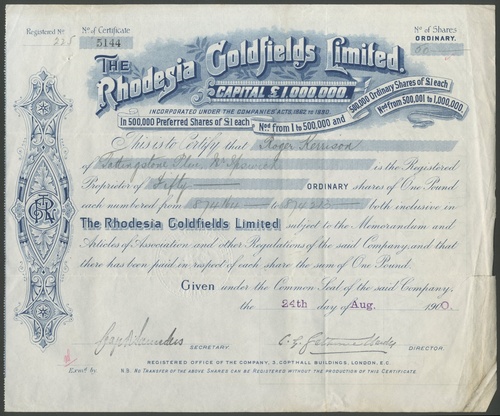 Registered No 225
No of Certificate
5144
No of Shares
ORDINARY.
50
THE
Rhodesia Goldfields Limited.
CAPITAL £1,000,000,
INCORPORATED UNDER THE COMPANIES' ACTS, 1862 TO 1890.
In 500,000 Preferred Shares of £1 each Nod from 1 to 500,000 and
500,000 Ordinary Shares of £1 each
Nod from 500,001 to 1,000,000.
This is to Certify that Roger Kerrison
of Tattingstone Place Nr Ipswich is the Registered
Proprietor of Fifty ORDINARY shares of One Pound
each numbered from to both inclusive in
The Rhodesia Goldfields Limited subject to the Memorandum and
Articles of Association and other Regulations of the said Company, and that
there has been paid in respect of each share the sum of One Pound.
Given under the Common Seal of the said Company,
the 24th day of Aug. 1900.
SECRETARY.
DIRECTOR.
REGISTERED OFFICE OF THE COMPANY, 3, COPTHALL BUILDINGS, LONDON, E.C.
Examd by
N.B. NO TRANSFER OF THE ABOVE SHARES CAN BE REGISTERED WITHOUT THE PRODUCTION OF THIS CERTIFICATE.